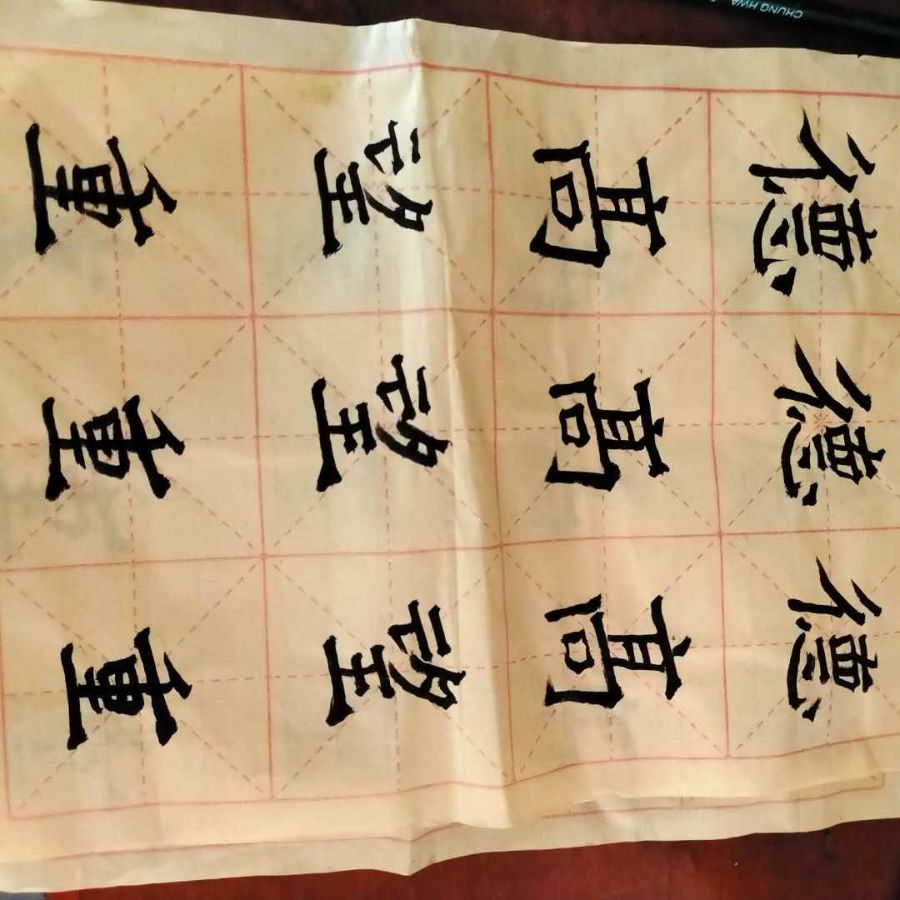 德髙望重
德髙望重
德髙望重
CHUNG HWA